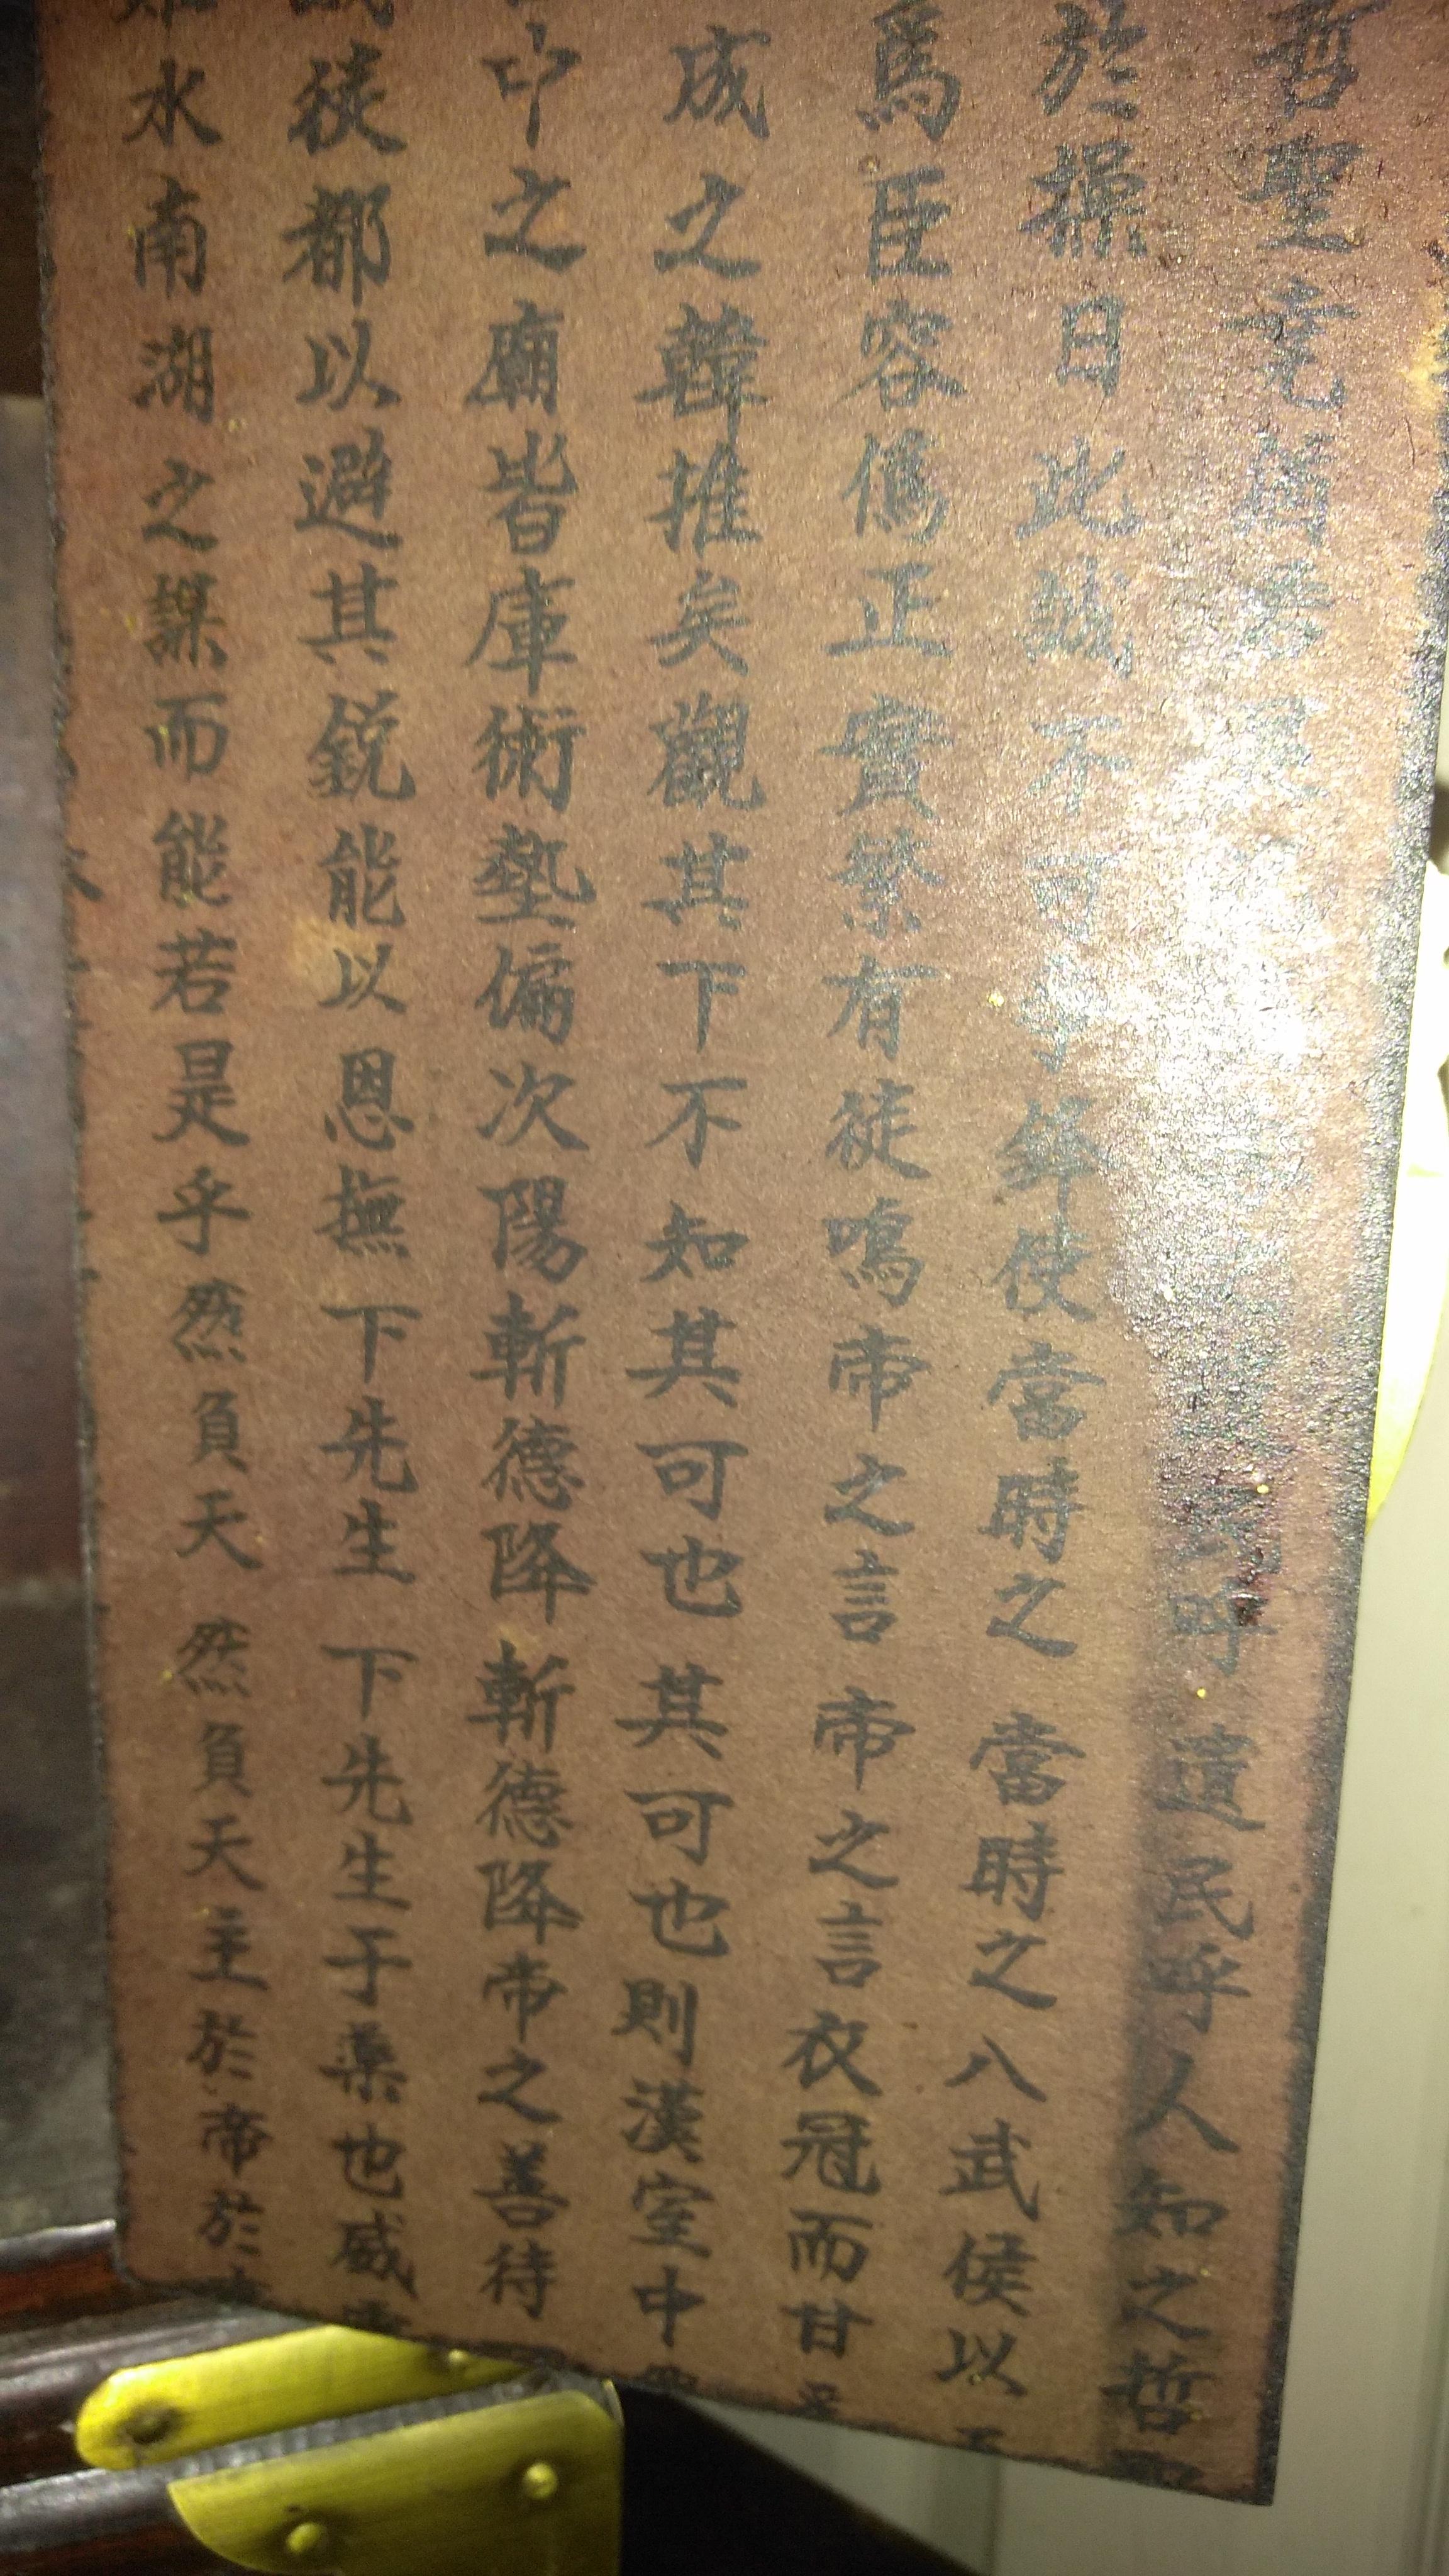 哲聖
呼遺民呼人知之哲
於操日此誠不可 鋒使當時之當時之八武侯以
爲臣容僞正實繁有徒鳴帝之言帝之言衣冠而甘
成之韓推矣觀其下不知其可也其可也則漢室中
中之廟皆庫術塾偏次陽斬德降斬德降帝之善待
徒都以避其銳能以恩撫下先生下先生于藥也威
水南湖之謀而能若是乎然負天然負天主於帝於